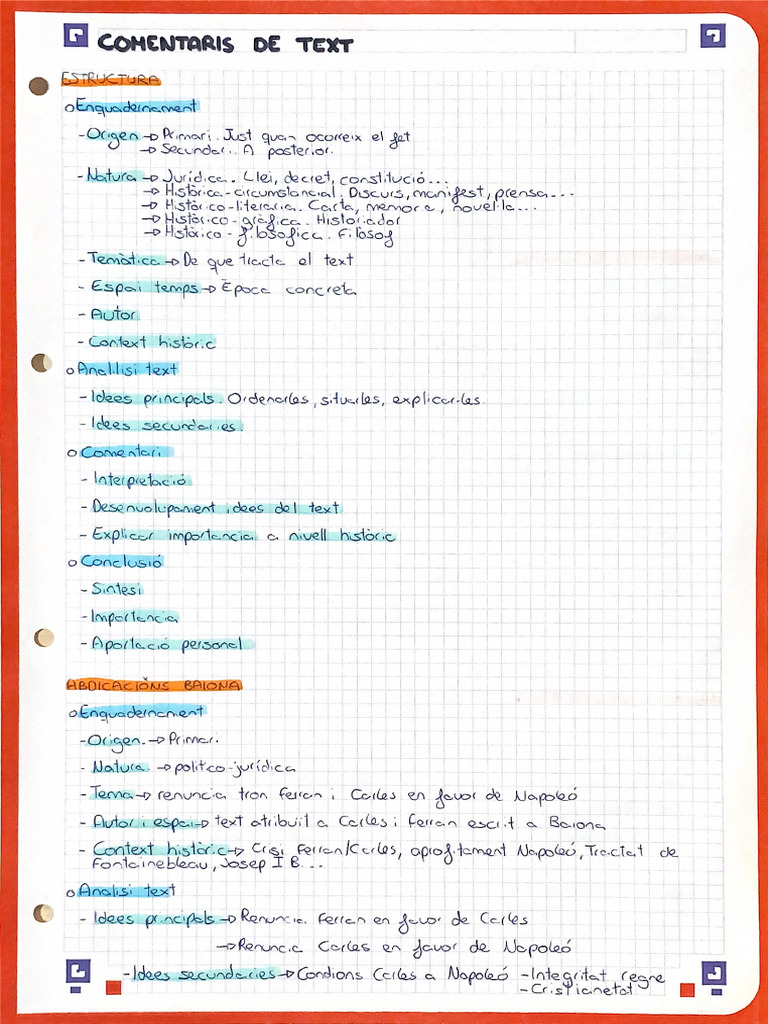 COMENTARIS DE TEXT
ESTRUCTURA
o Enquadernament
- Origen → Primari. Just quan ocorreix el fet
→ Secundari. A posteriori
- Natura → Jurídica. Llei, decret, constitució...
→ Històrica-circumstancial. Discurs, manifest, premsa...
→ Històrico-literaria. Carta, memoria, novel·la...
→ Històrico-gràfica. Historiador
→ Històrico-filosofica. Filòsof
- Temàtica → De que tracta el text
- Espai temps → Època concreta
- Autor
- Context històric
o Anàlisi text
- Idees principals. Ordenarles, situarles, explicar-les.
- Idees secundaries.
o Comentari
- Interpretació
- Desenvolupament idees del text
- Explicar importancia a nivell històric
o Conclusió
- Síntesi
- Importancia
- Aportació personal
ABDICACIÓNS BAIONA
o Enquadernament
- Origen. → Primari.
- Natura → politico-jurídica
- Tema → renuncia tron Ferran i Carles en favor de Napoleó
- Autor i espai → text atribuit a Carles i Ferran escrit a Baiona
- Context històric → Crisi Ferran/Carles, aprofitament Napoleó, Tractat de
Fontainebleau, Josep I B...
o Analisi text
- Idees principals → Renuncia Ferran en favor de Carles
→ Renuncia Carles en favor de Napoleó
- Idees secundaries → Condions Carles a Napoleó - Integritat regne
- Cristianetat